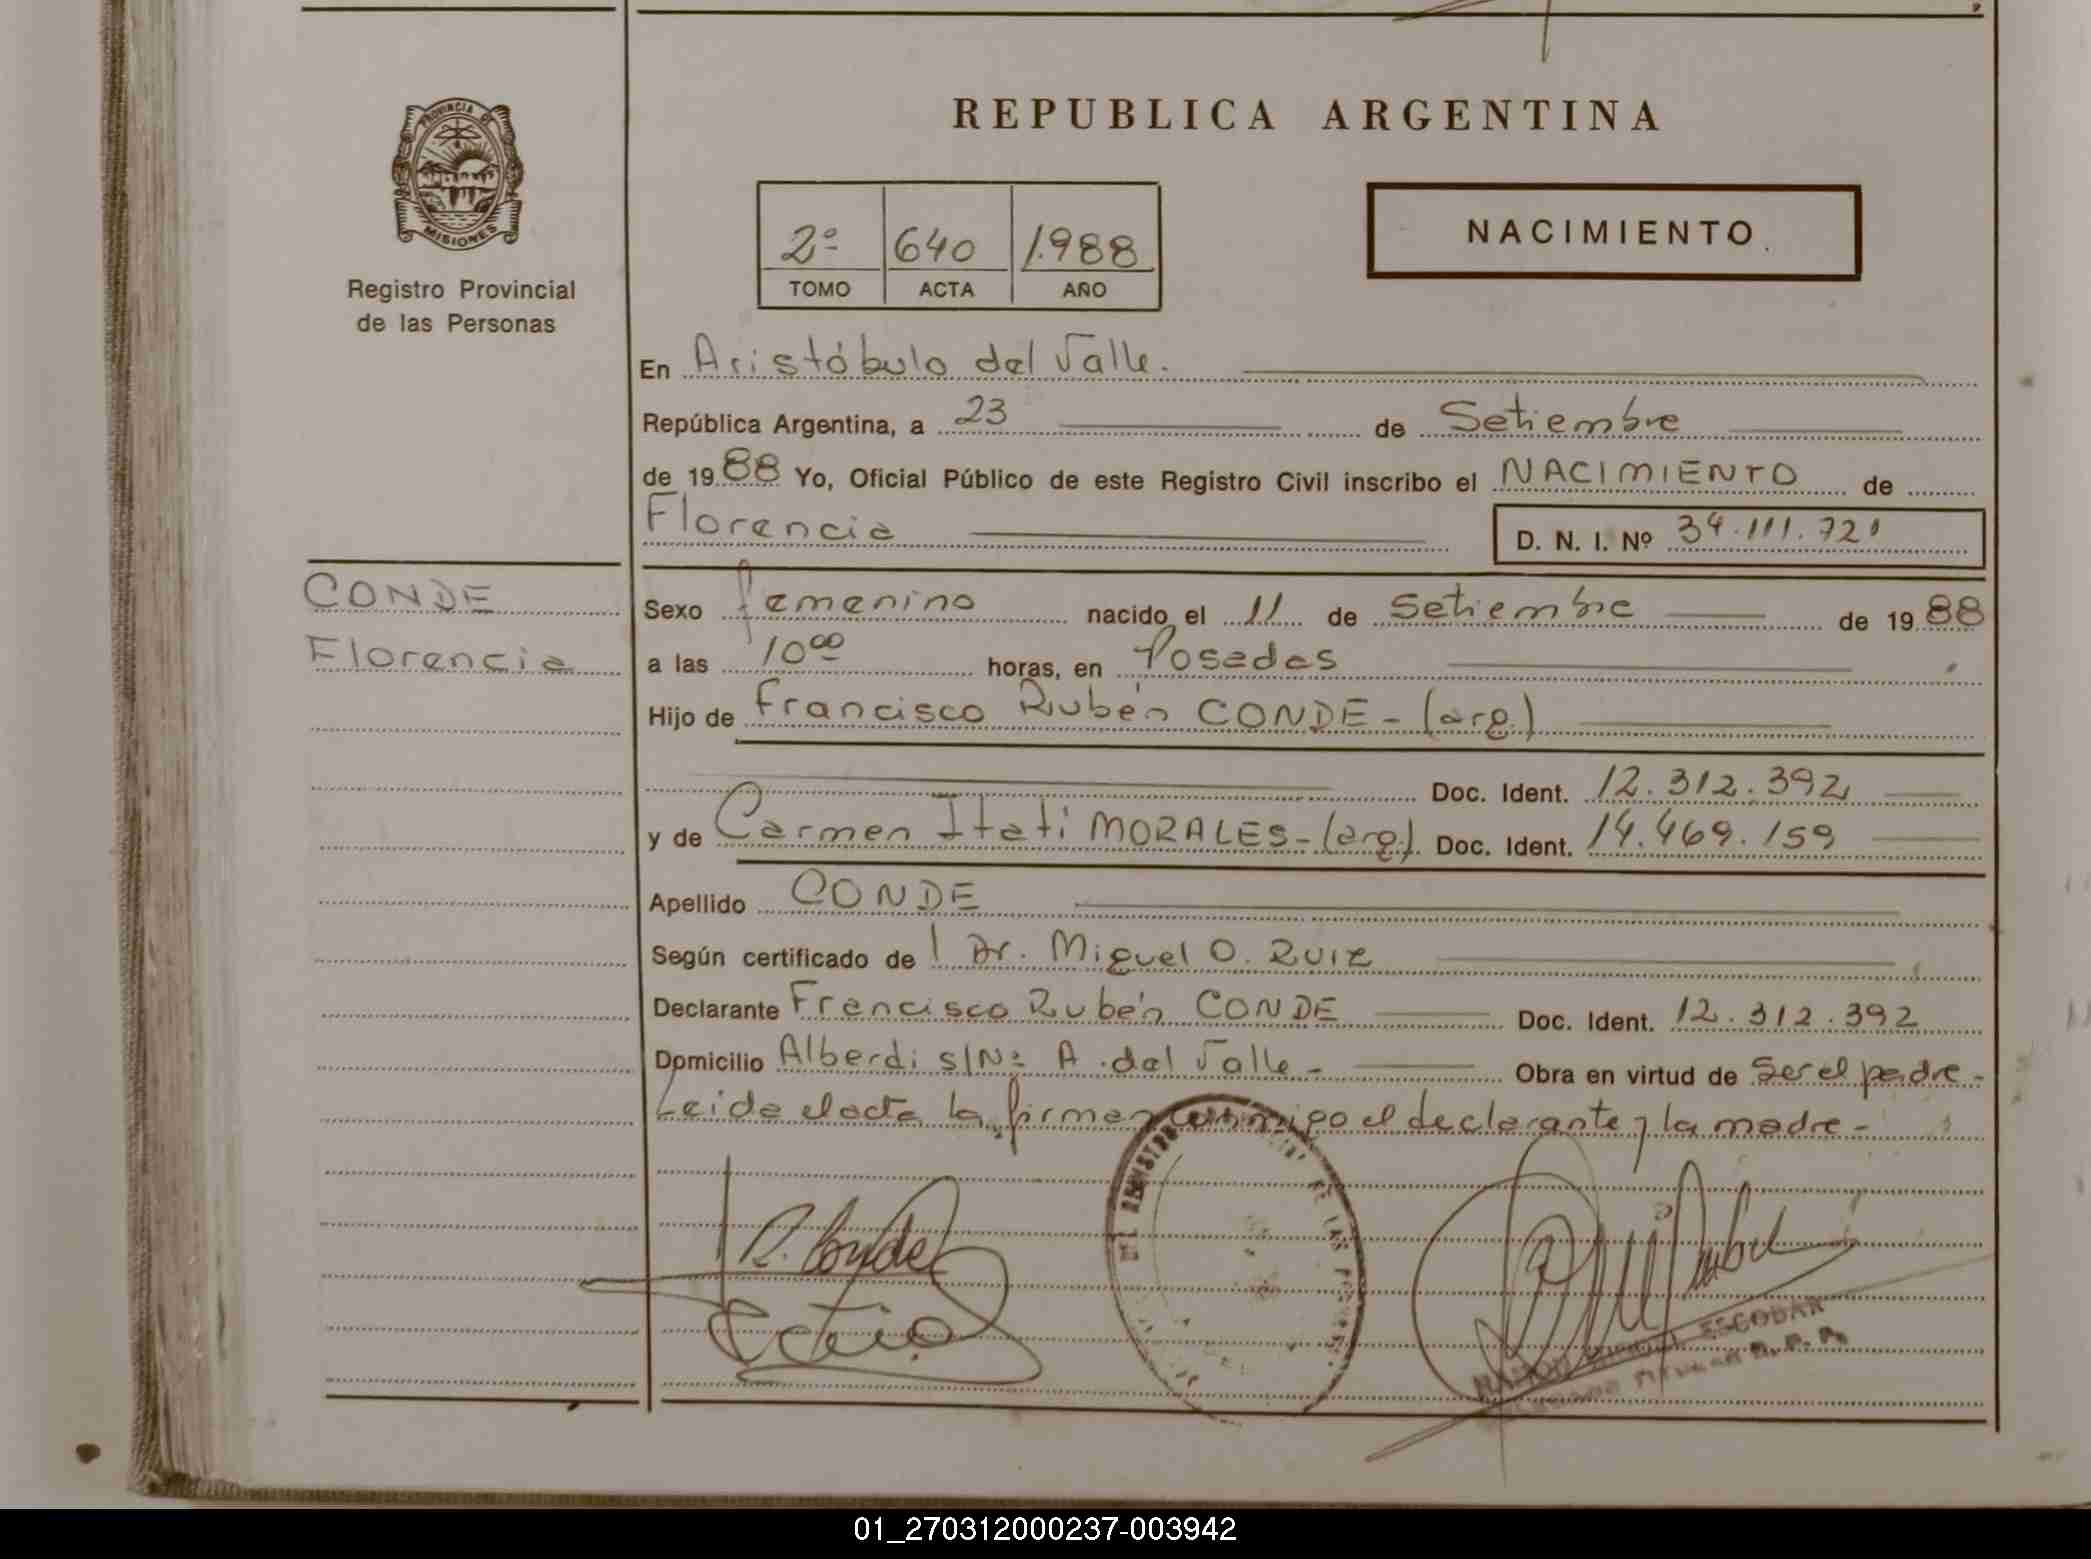 PROVINCIA DE
MISIONES
Registro Provincial
de las Personas
REPUBLICA ARGENTINA
2º 640 1.988
TOMO ACTA AÑO
NACIMIENTO
En Aristóbulo del Valle.
República Argentina, a 23 de Setiembre
de 1988 Yo, Oficial Público de este Registro Civil inscribo el NACIMIENTO de
Florencia
D. N. I. Nº 34.111.721
CONDE
Florencia
Sexo femenino nacido el 11 de Setiembre de 1988
a las 10⁰⁰ horas, en Posadas
Hijo de Francisco Rubén CONDE - (arg.)
Doc. Ident. 12.312.392
y de Carmen Itatí MORALES - (arg.) Doc. Ident. 14.469.159
Apellido CONDE
Según certificado de l Dr. Miguel O. Ruiz
Declarante Francisco Rubén CONDE Doc. Ident. 12.312.392
Domicilio Alberdi s/Nº A. del Valle - Obra en virtud de Ser el padre -
Leida el acta la firman conmigo el declarante y la madre -
R. Conde
REGISTRO DE LAS
ESCOBAR
01_270312000237-003942